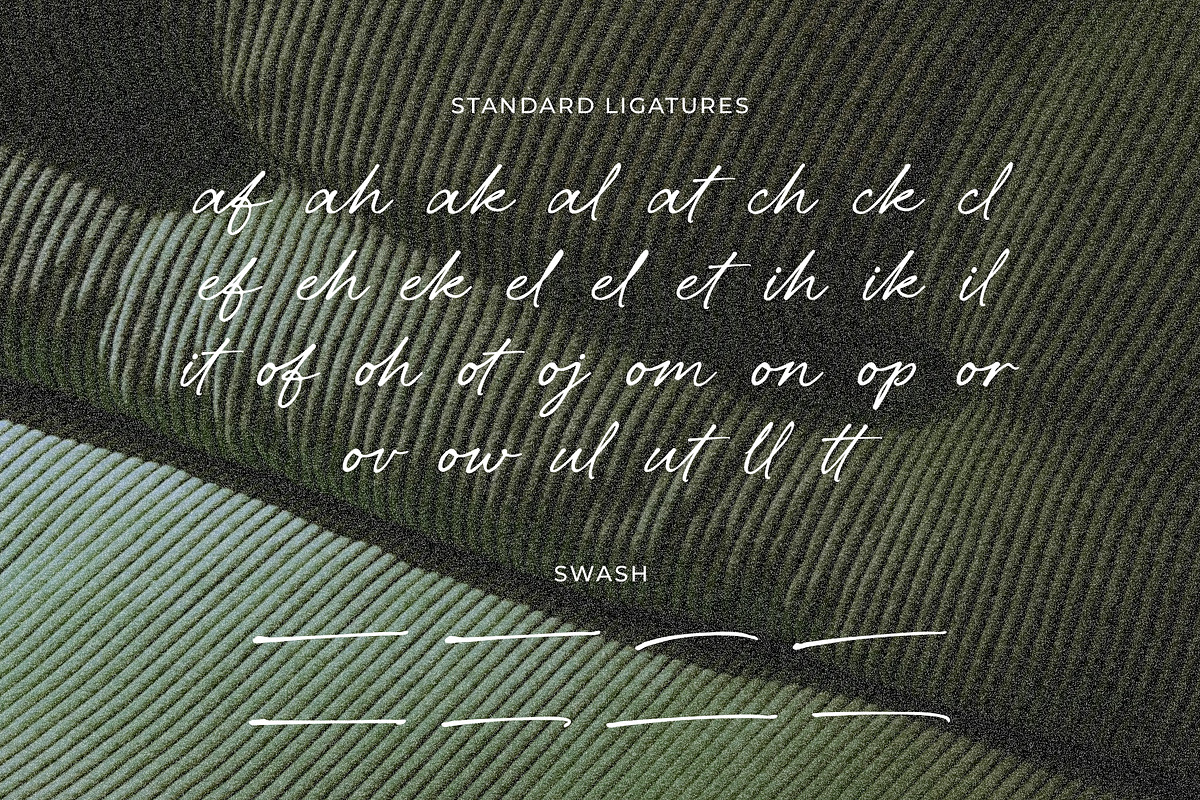 STANDARD LIGATURES
af ah ak al at ch ck cl
ef eh ek el el et ih ik il
it of oh ot oj om on op or
ov ow ul ut ll tt
SWASH